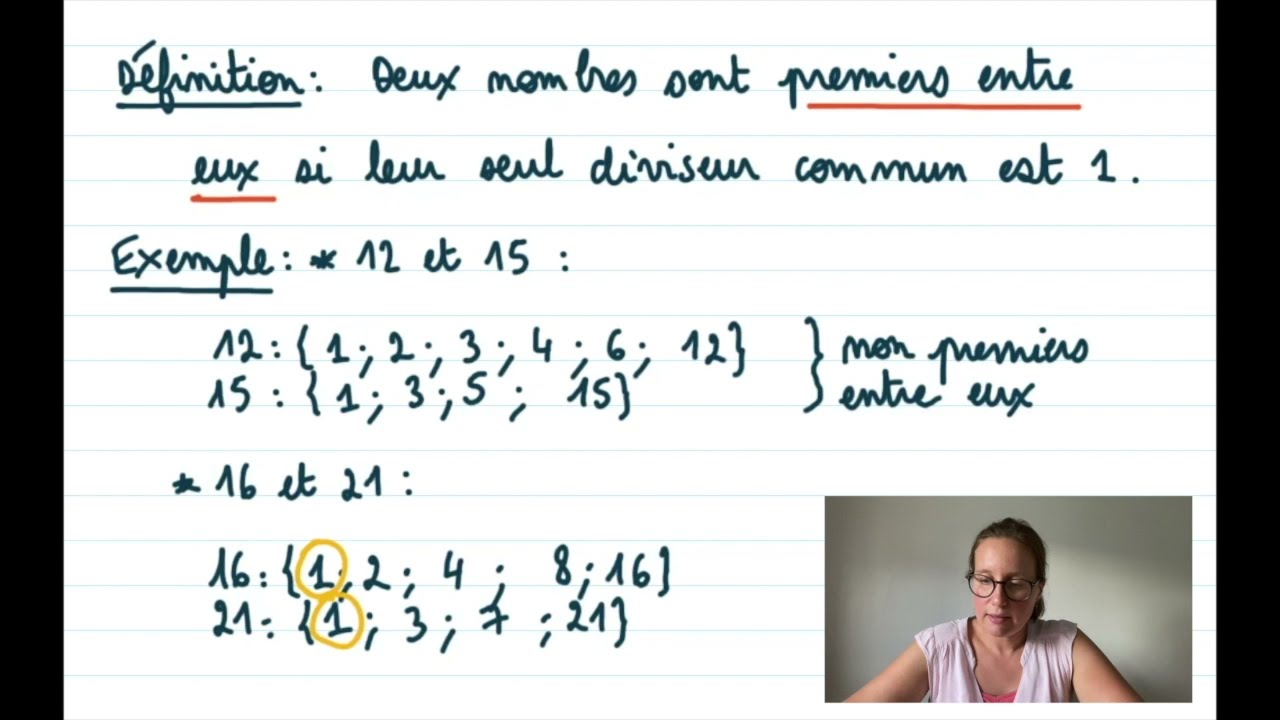 Définition : Deux nombres sont premiers entre
eux si leur seul diviseur commun est 1.
Exemple : * 12 et 15 :
12 : { 1 ; 2 ; 3 ; 4 ; 6 ; 12} } non premiers
15 : { 1 ; 3 ; 5 ; 15} entre eux
* 16 et 21 :
16 : { 1 ; 2 ; 4 ; 8 ; 16}
21 : { 1 ; 3 ; 7 ; 21}